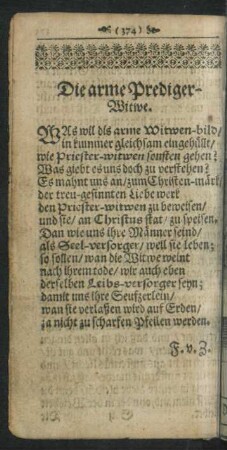 (374)
Die arme Prediger-
Witwe.
WAs wil dis arme Witwen-bild/
in kummer gleichsam eingehüllt/
wie Priester-witwen sonsten gehen?
Was giebt es uns doch zu verstehen?
Es mahnt uns an/ zum Christen-märk/
der treu-gesinnten Liebe werk
den Priester-witwen zu beweisen/
und sie/ an Christus stat/ zu speisen.
Dan wie uns ihre Männer seind/
als Seel-versorger/ weil sie leben;
so sollen/ wan die Witwe weint
nach ihrem tode/ wir auch eben
derselben Leibs-versorger seyn;
damit uns ihre Seufzerlein/
wan sie verlaßen wird auf Erden/
ja nicht zu scharfen Pfeilen werden.
F. v. Z.